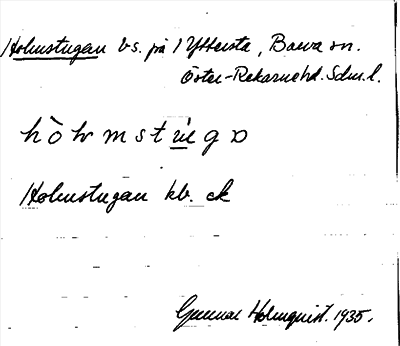 Holmstugan bs. på Yttersta, Barva sn.
Öster-Rekarne hd. Sdm. l.
Holmstugan kb. ck
Gunnar Holmquist. 1935.